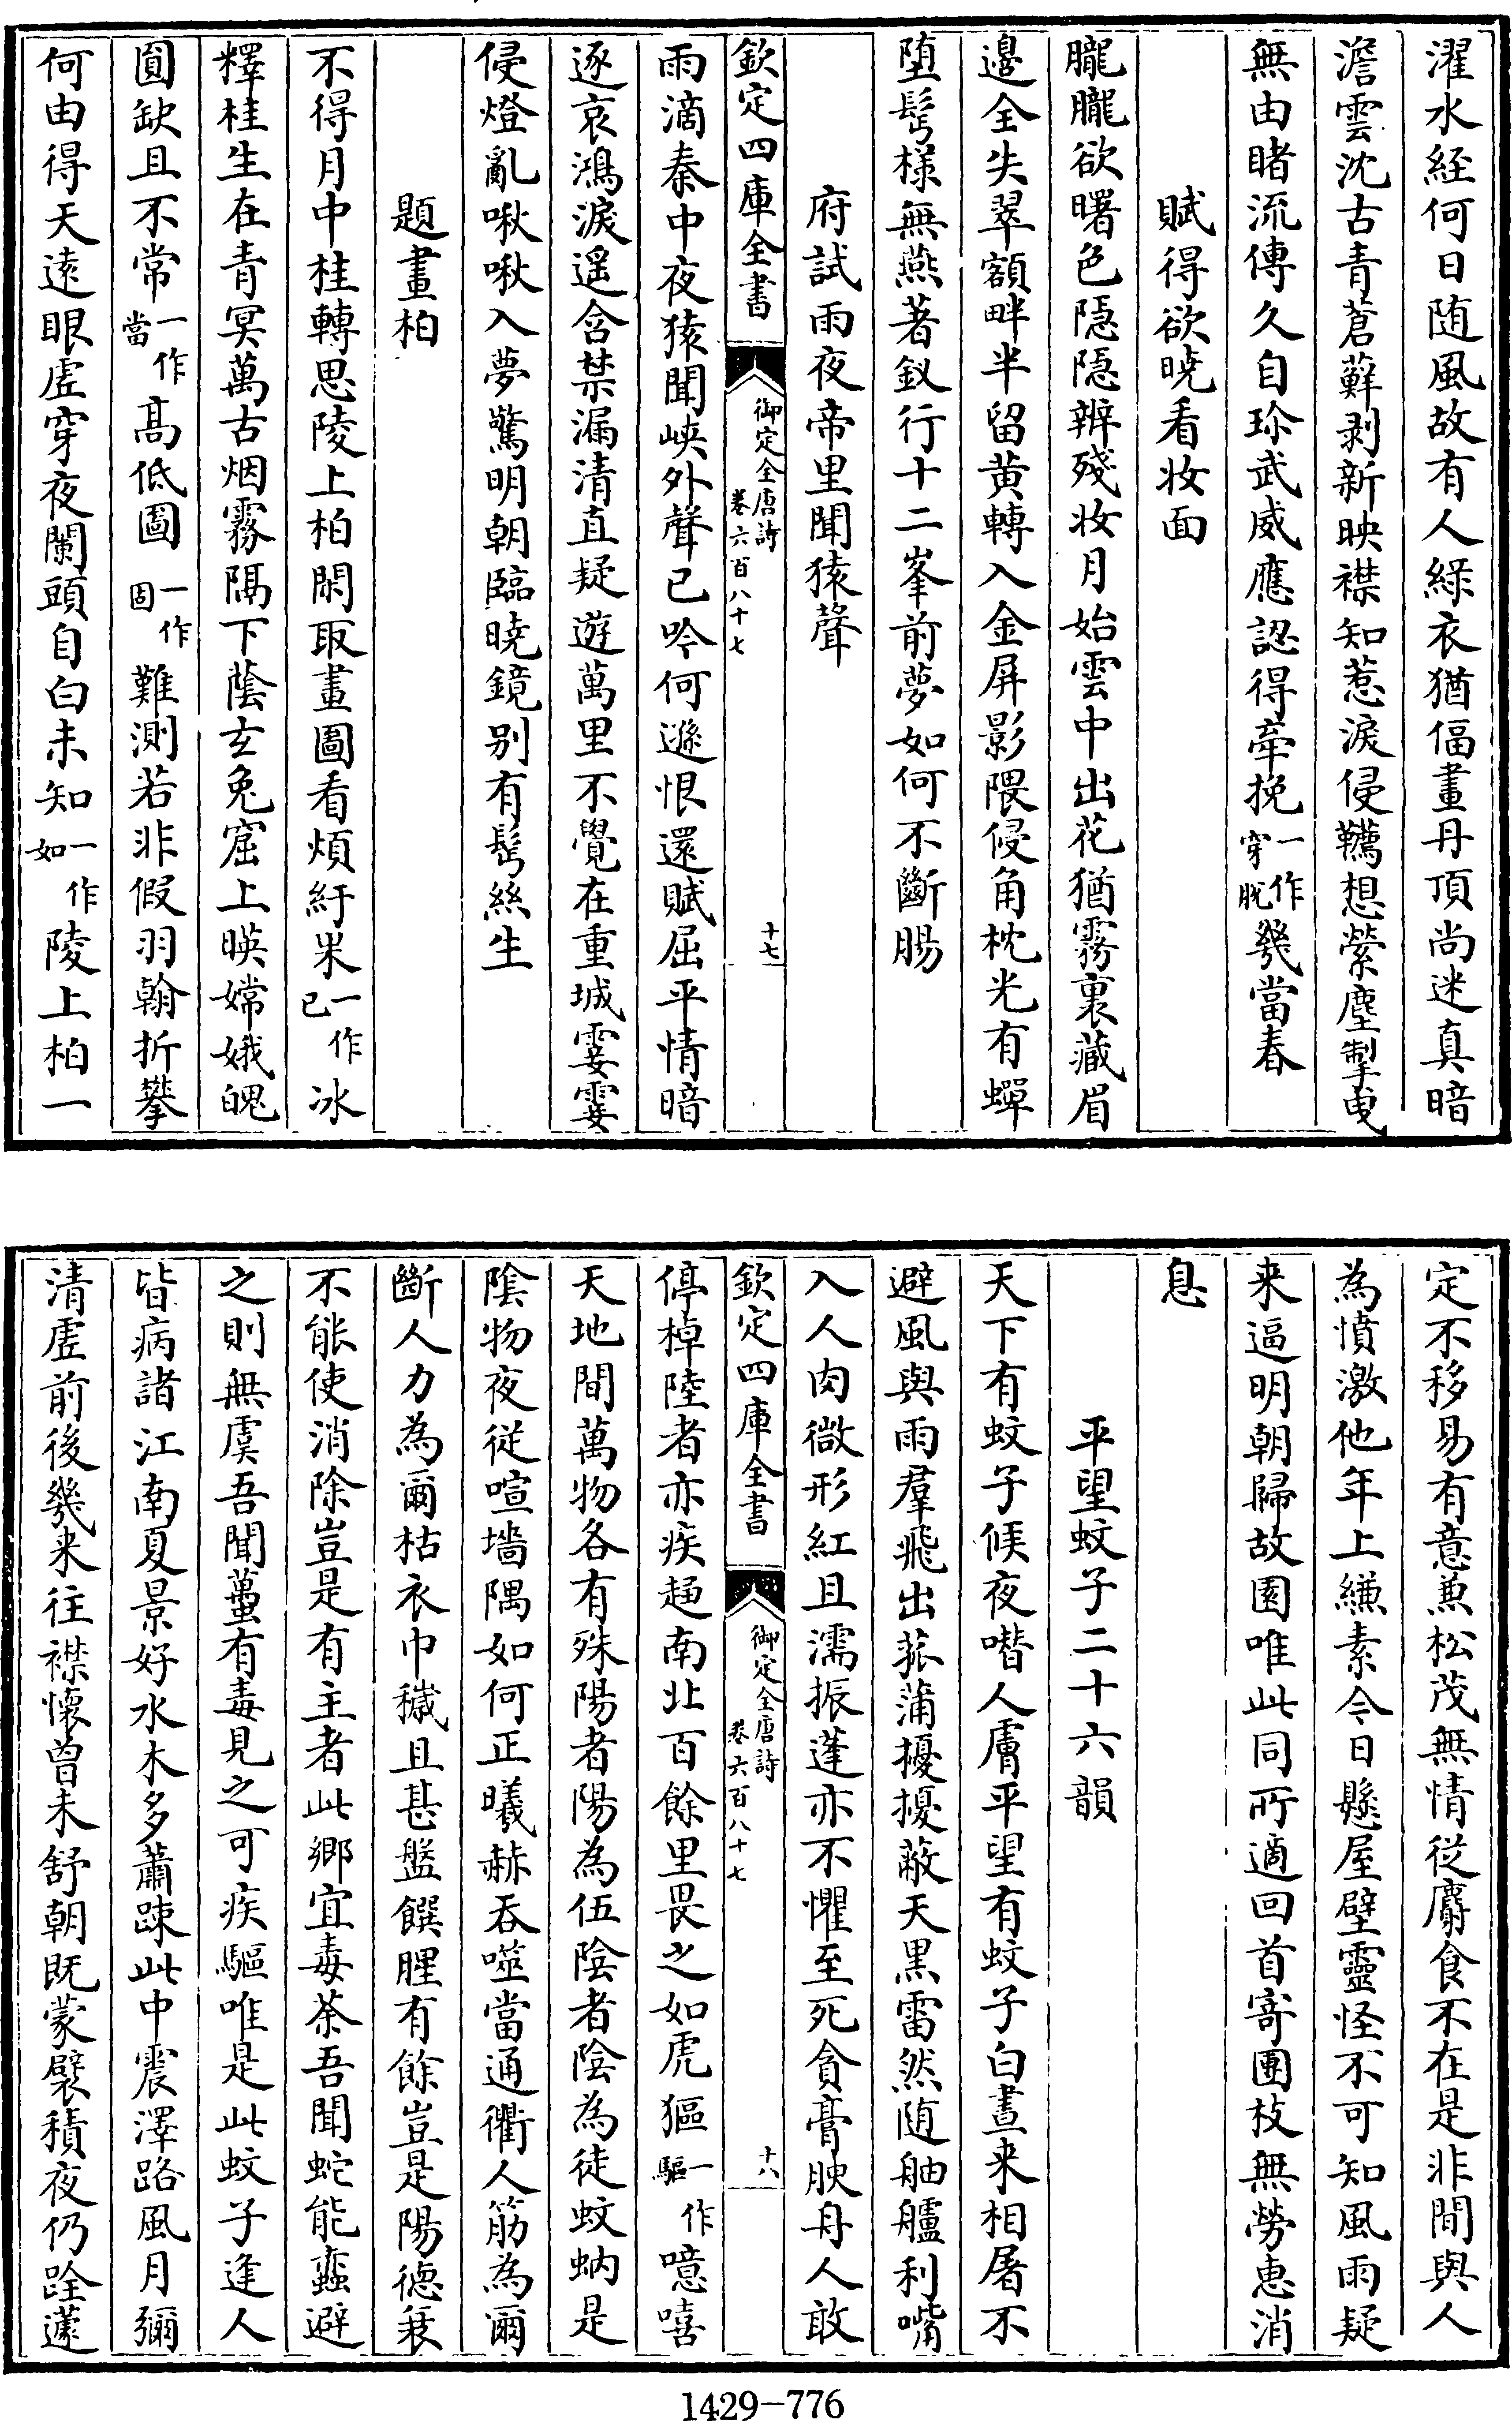 濯水經何日随風故有人緑衣猶偪畫丹頂尚迷真暗
澹雲沈古青蒼蘚剥新映襟知惹淚侵韉想縈塵掣曵
無由睹流傳久自珍武威應認得牽挽一作穿脫幾當春
賦得欲曉看妝面
朧朧欲曙色隠隠辨殘妝月始雲中出花猶霧裏藏眉
邉全失翠額畔半留黄轉入金屏影隈侵角枕光有蟬
堕髻樣無燕著釵行十二峯前夢如何不斷腸
府試雨夜帝里聞猿聲
欽定四庫全書
御定全唐詩
卷六百八十七
十七
雨滴秦中夜猿聞峽外聲已吟何遜恨還賦屈平情暗
逐哀鴻淚遥含禁漏清直疑遊萬里不覺在重城霎霎
侵燈亂啾啾入夢驚明朝臨曉鏡别有髩絲生
題畫柏
不得月中桂轉思陵上柏閑取畫圖看煩紆果一作已冰
釋桂生在青冥萬古烟霧隔下蔭玄兔窟上暎嫦娥魄
圓缺且不常一作當高低圖一作固難測若非假羽翰折攀
何由得天逺眼虚穿夜闌頭自白未知一作如陵上柏一
定不移易有意兼松茂無情從麝食不在是非間與人
為憤激他年上縑素今日懸屋壁靈怪不可知風雨疑
来逼明朝歸故園唯此同所適回首寄團枝無勞惠消
息
平望蚊子二十六韻
天下有蚊子候夜噆人膚平望有蚊子白晝来相屠不
避風與雨羣飛出菰蒲擾擾蔽天黒雷然随舳艫利嘴
入人肉微形紅且濡振蓬亦不懼至死貪膏腴舟人敢
欽定四庫全書
御定全唐詩
卷六百八十七
十八
停棹陸者亦疾趍南北百餘里畏之如虎貙一作驅噫嘻
天地間萬物各有殊陽者陽為伍陰者陰為徒蚊蚋是
陰物夜従喧墻隅如何正曦赫吞噬當通衢人筋為爾
斷人力為爾枯衣巾穢且甚盤饌腥有餘豈是陽德衰
不能使消除豈是有主者此鄉宜毒荼吾聞蛇能螫避
之則無虞吾聞蠆有毒見之可疾驅唯是此蚊子逢人
皆病諸江南夏景好水木多蕭疎此中震澤路風月彌
清虚前後幾来往襟懷曽未舒朝既蒙襞積夜仍跧蘧
1429-776